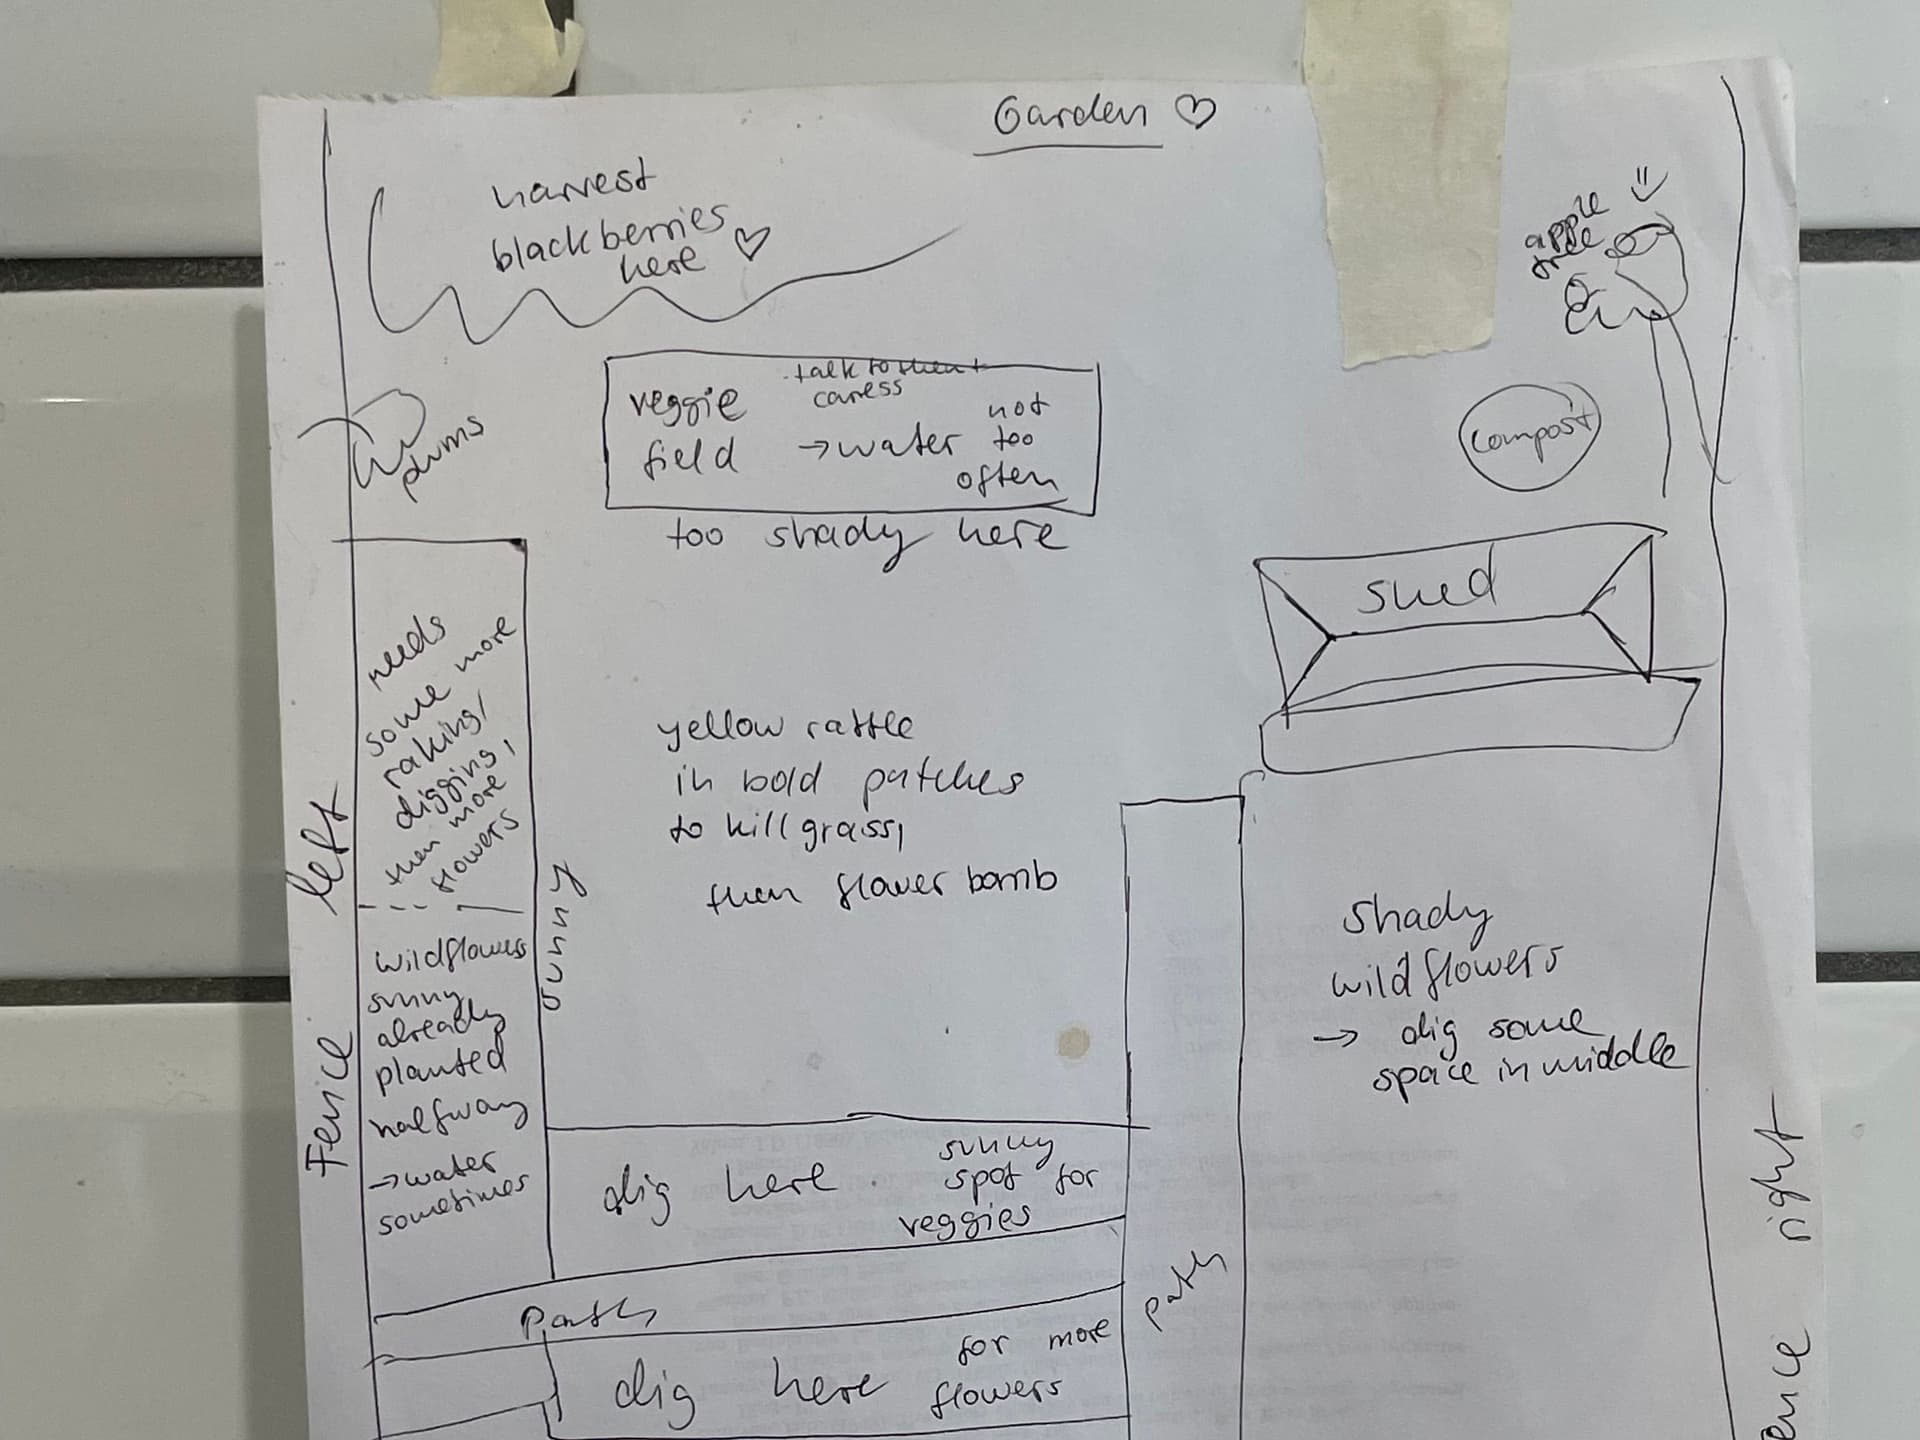 Garden ♡
harvest
blackberries
here ♡
apple
tree
plums
veggie
field
talk to them +
caress
→ water not
too
often
too shady here
compost
shed
needs
some more
raking/
digging,
then more
flowers
left
Fence
sunny
wildflowers
sunny
already
planted
halfway
→ water
sometimes
yellow rattle
in bold patches
to kill grass,
then flower bomb
shady
wildflowers
→ dig some
space in middle
dig here
sunny
spot for
veggies
path
path
dig here
for more
flowers
right
ence